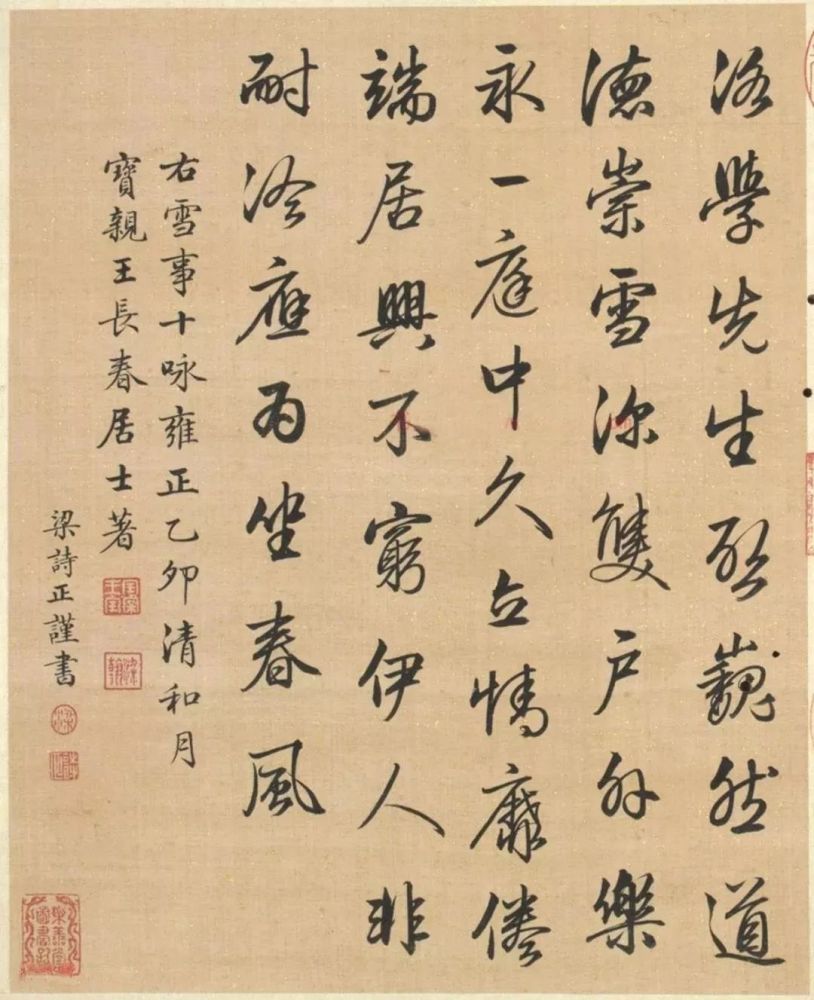 洛學先生啟巍然道
德崇雪深雙戶外樂
永一庭中久立情靡倦
端居興不窮伊人非
耐冷應為坐春風
右雪事十咏雍正乙卯清和月
寶親王長春居士著
梁詩正謹書
樂善堂圖書記